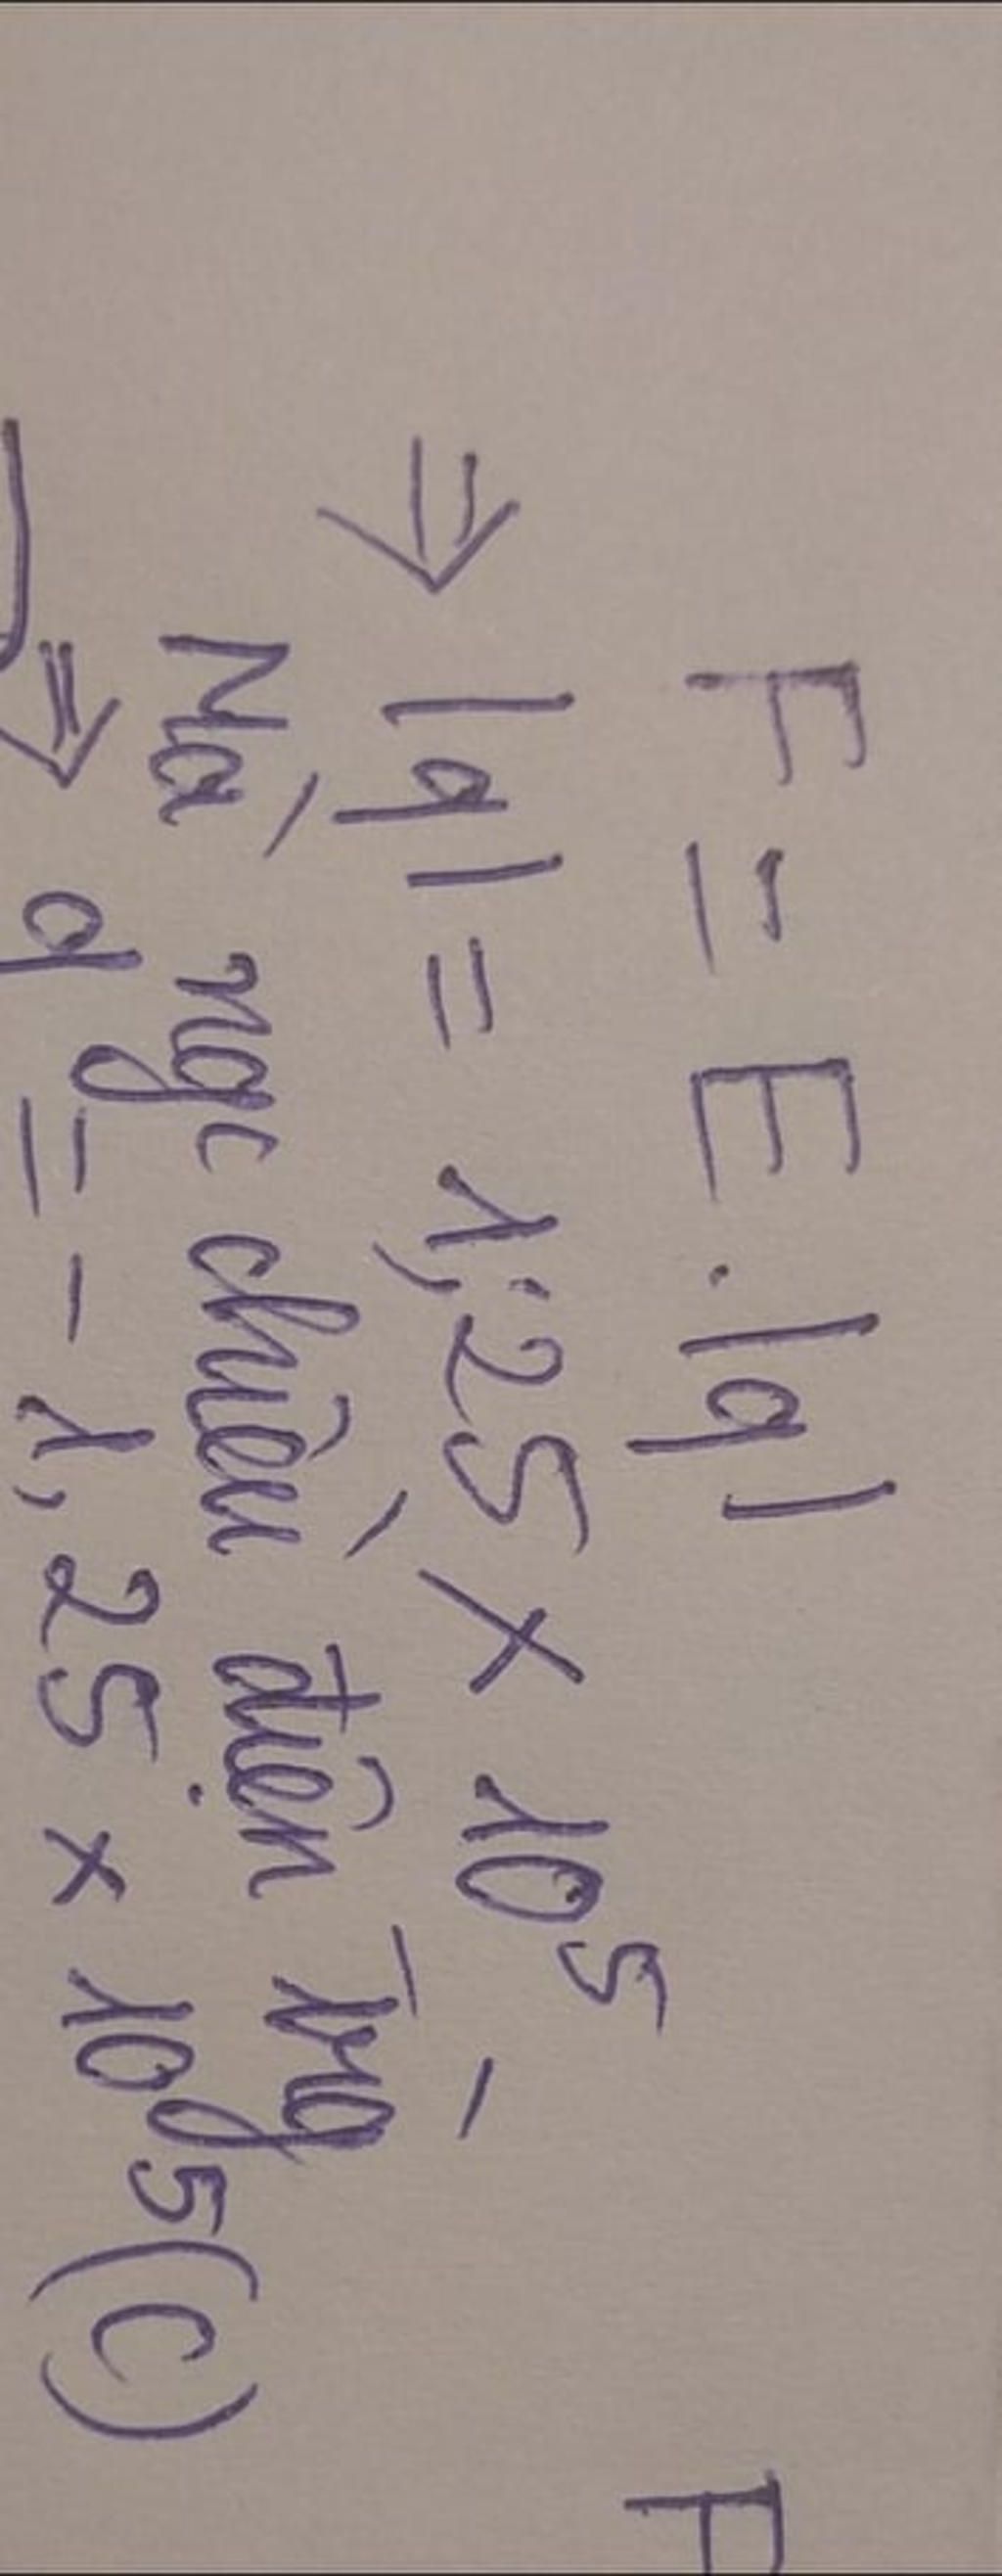 F = E . |q|
F
⇒ |q| = 1,25 × 10⁵
Mà ngc chiều điện trg
⇒ q = - 1,25 × 10⁵ (C)